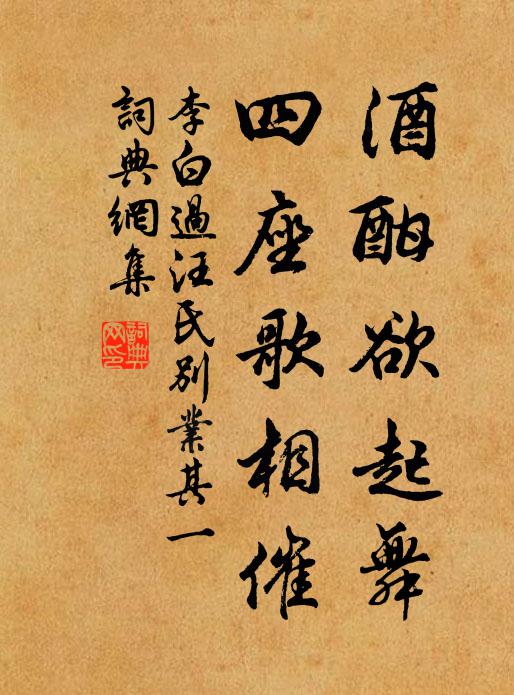 酒酣欲起舞
四座歌相催
李白過汪氏別業其一
詞典網集
詞典網印